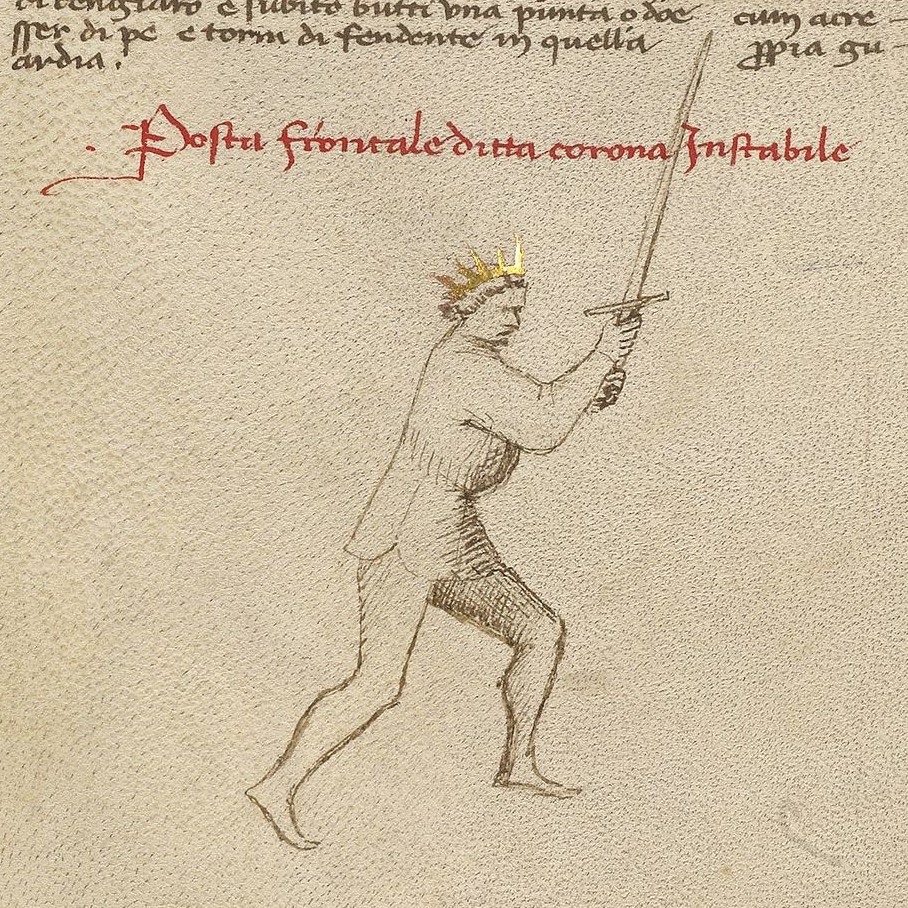 di rengiaro e subito butti una punta o doe cum acre-
sser di pe e torni di fendente in quella ppia gu-
ardia.
Posta frontale ditta corona Instabile